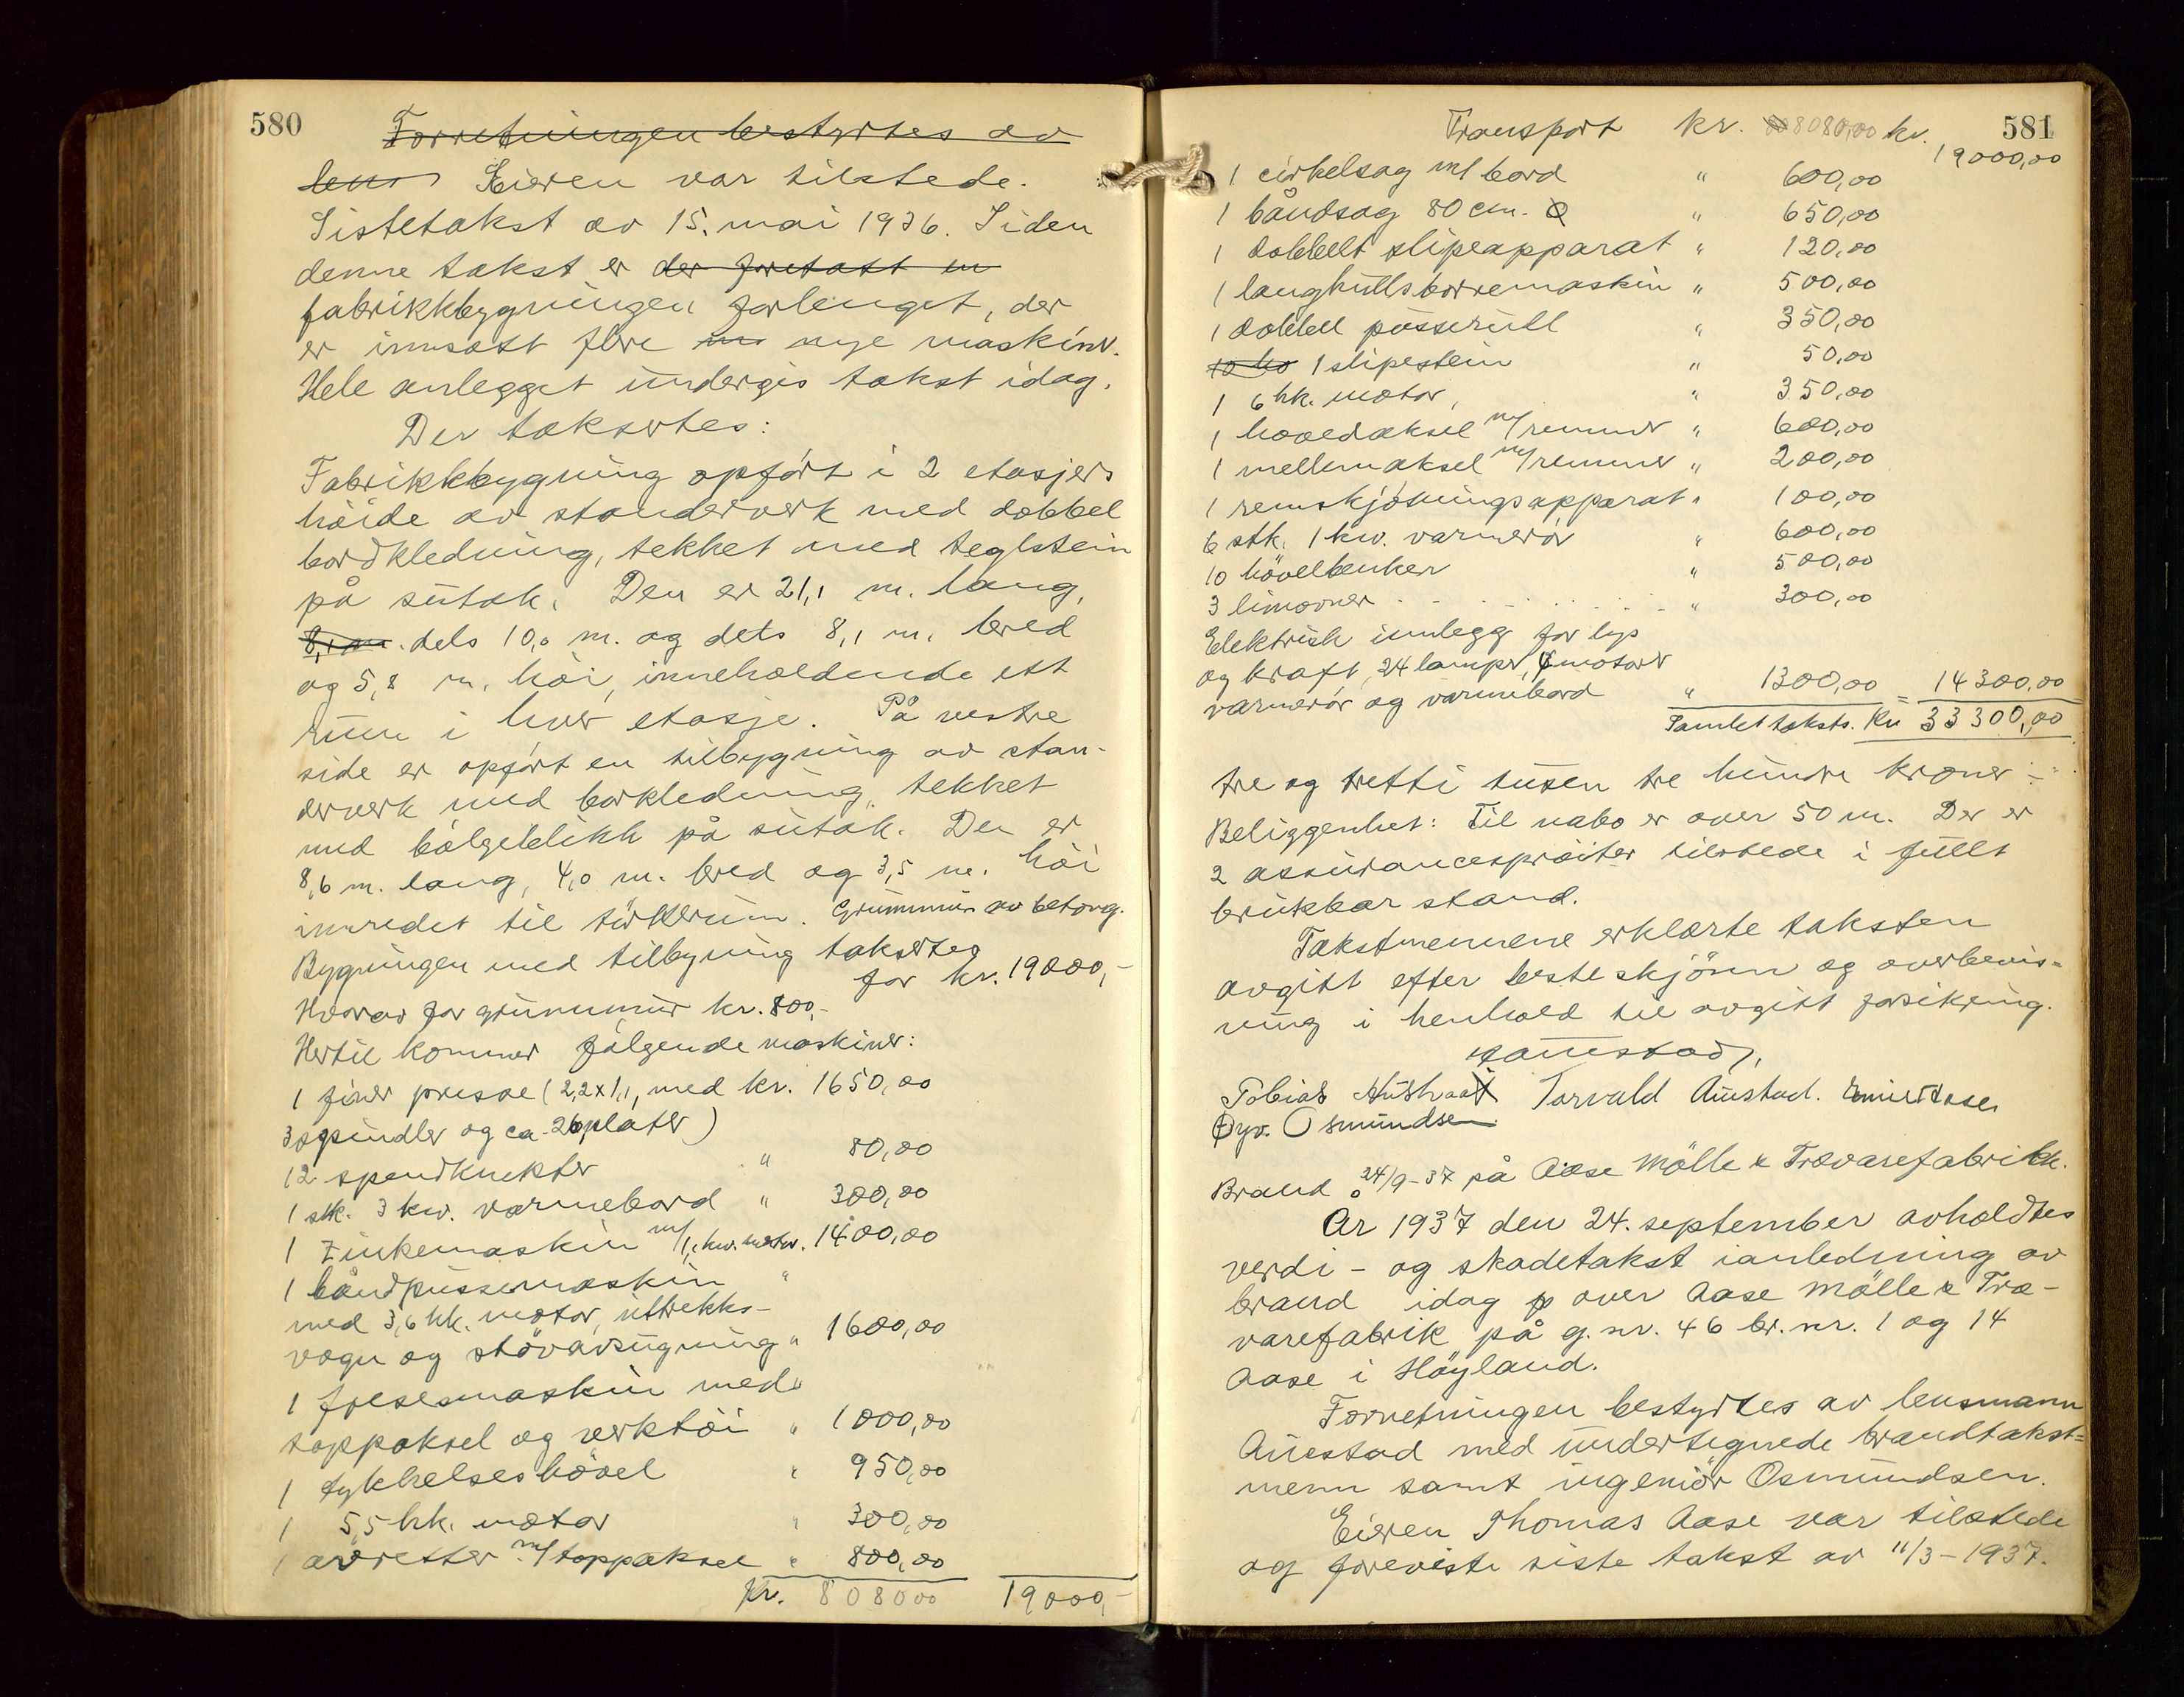 580
Forretningen bestyrtes av
lens Eieren var tilstede.
Sistetakst av 15. mai 1936. Siden
denne takst er der foretatt en
fabrikkbygningen forlenget, der
er innsatt flere nye maskiner.
Hele anlegget undergis takst idag.
Der taksertes:
Fabrikkbygning opført i 2 etasjers
höide av standerverk med dobbel
bordkledning, tekket med teglstein
på sutak. Den er 21,1 m. lang,
8,1 m. dels 10,0 m. og dels 8,1 m. bred
og 5,8 m. höi, inneholdende ett
rum i hver etasje. På vestre
side er opført en tilbygning av stan-
derverk med borkledning, tekket
med bølgeblikk på sutak. Den er
8,6 m. lang, 4,0 m. bred og 3,5 m. höi
innredet til törkerum. Grunnmur av betong.
Bygningen med tilbyning taksertes
for kr. 19000,-
Hvorav for grunnmur kr. 800,-
Hertil kommer følgende maskiner:
1 finer presse (2,2x1,1, med kr. 1650,00
3 spindler og ca. 26 plater)
12 spendknekter " 80,00
1 stk. 3 kw. varmebord " 300,00
1 Zinkemaskin m/1,1 kw. motor. 1400,00
1 båndpussemaskin "
med 3,6 hk. motor, uttrekks-
vogn og støvavsugning " 1600,00
1 fresemaskin med "
toppaksel og verktöi " 1000,00
1 tykkelseshövel " 950,00
1 5,5 hk. motor " 300,00
1 avretter m/toppaksel " 800,00
Kr. 808000 19000,-
581
Transport kr. 8080,00 kr.
19000,00
1 cirkelsag m/ bord " 600,00
1 båndsag 80 cm. Ø " 650,00
1 dobbelt slipeapparat " 120,00
1 langhullsborremaskin " 500,00
1 dobbel pusserull " 350,00
1 slipestein " 50,00
1 6 hk. motor, " 350,00
1 hovedaksel m/remmer " 600,00
1 mellemaksel m/remmer " 200,00
1 remskjøtningsapparat " 100,00
6 stk. 1 kw. varmerör " 600,00
10 hövelbenker " 500,00
3 limovner " 300,00
Elektrisk innlegg for lys
og kraft, 24 lamper, 4 motorer
varmerör og varmebord " 1300,00 = 14300,00
Samlet takst. Kr 33300,00
tre og tretti tusen tre hundre kroner -
Beliggenhet: Til nabo er over 50 m. Der er
2 assuransesprøiter tilstede i fullt
brukbar stand.
Takstmennene erklærte taksten
avgitt efter beste skjönn og overbevis-
ning i henhold til avgitt forsikring.
Aaustad,
Tobias Torvald Austad. Emil Aase
Øyv. Osmundsen
Brand 24/9-37 på Aase Mölle & Trævarefabrikk.
År 1937 den 24. september avholdtes
verdi- og skadetakst ianledning av
brand idag over Aase Mölle & Træ-
varefabrik på g.nr. 46 br.nr. 1 og 14
Aase i Höyland.
Forretningen bestyrtes av lensmann
Auestad med undertegnede brandtakst-
menn samt ingeniör Osmundsen.
Eieren Thomas Aase var tilstede
og foreviste siste takst av 11/3-1937.